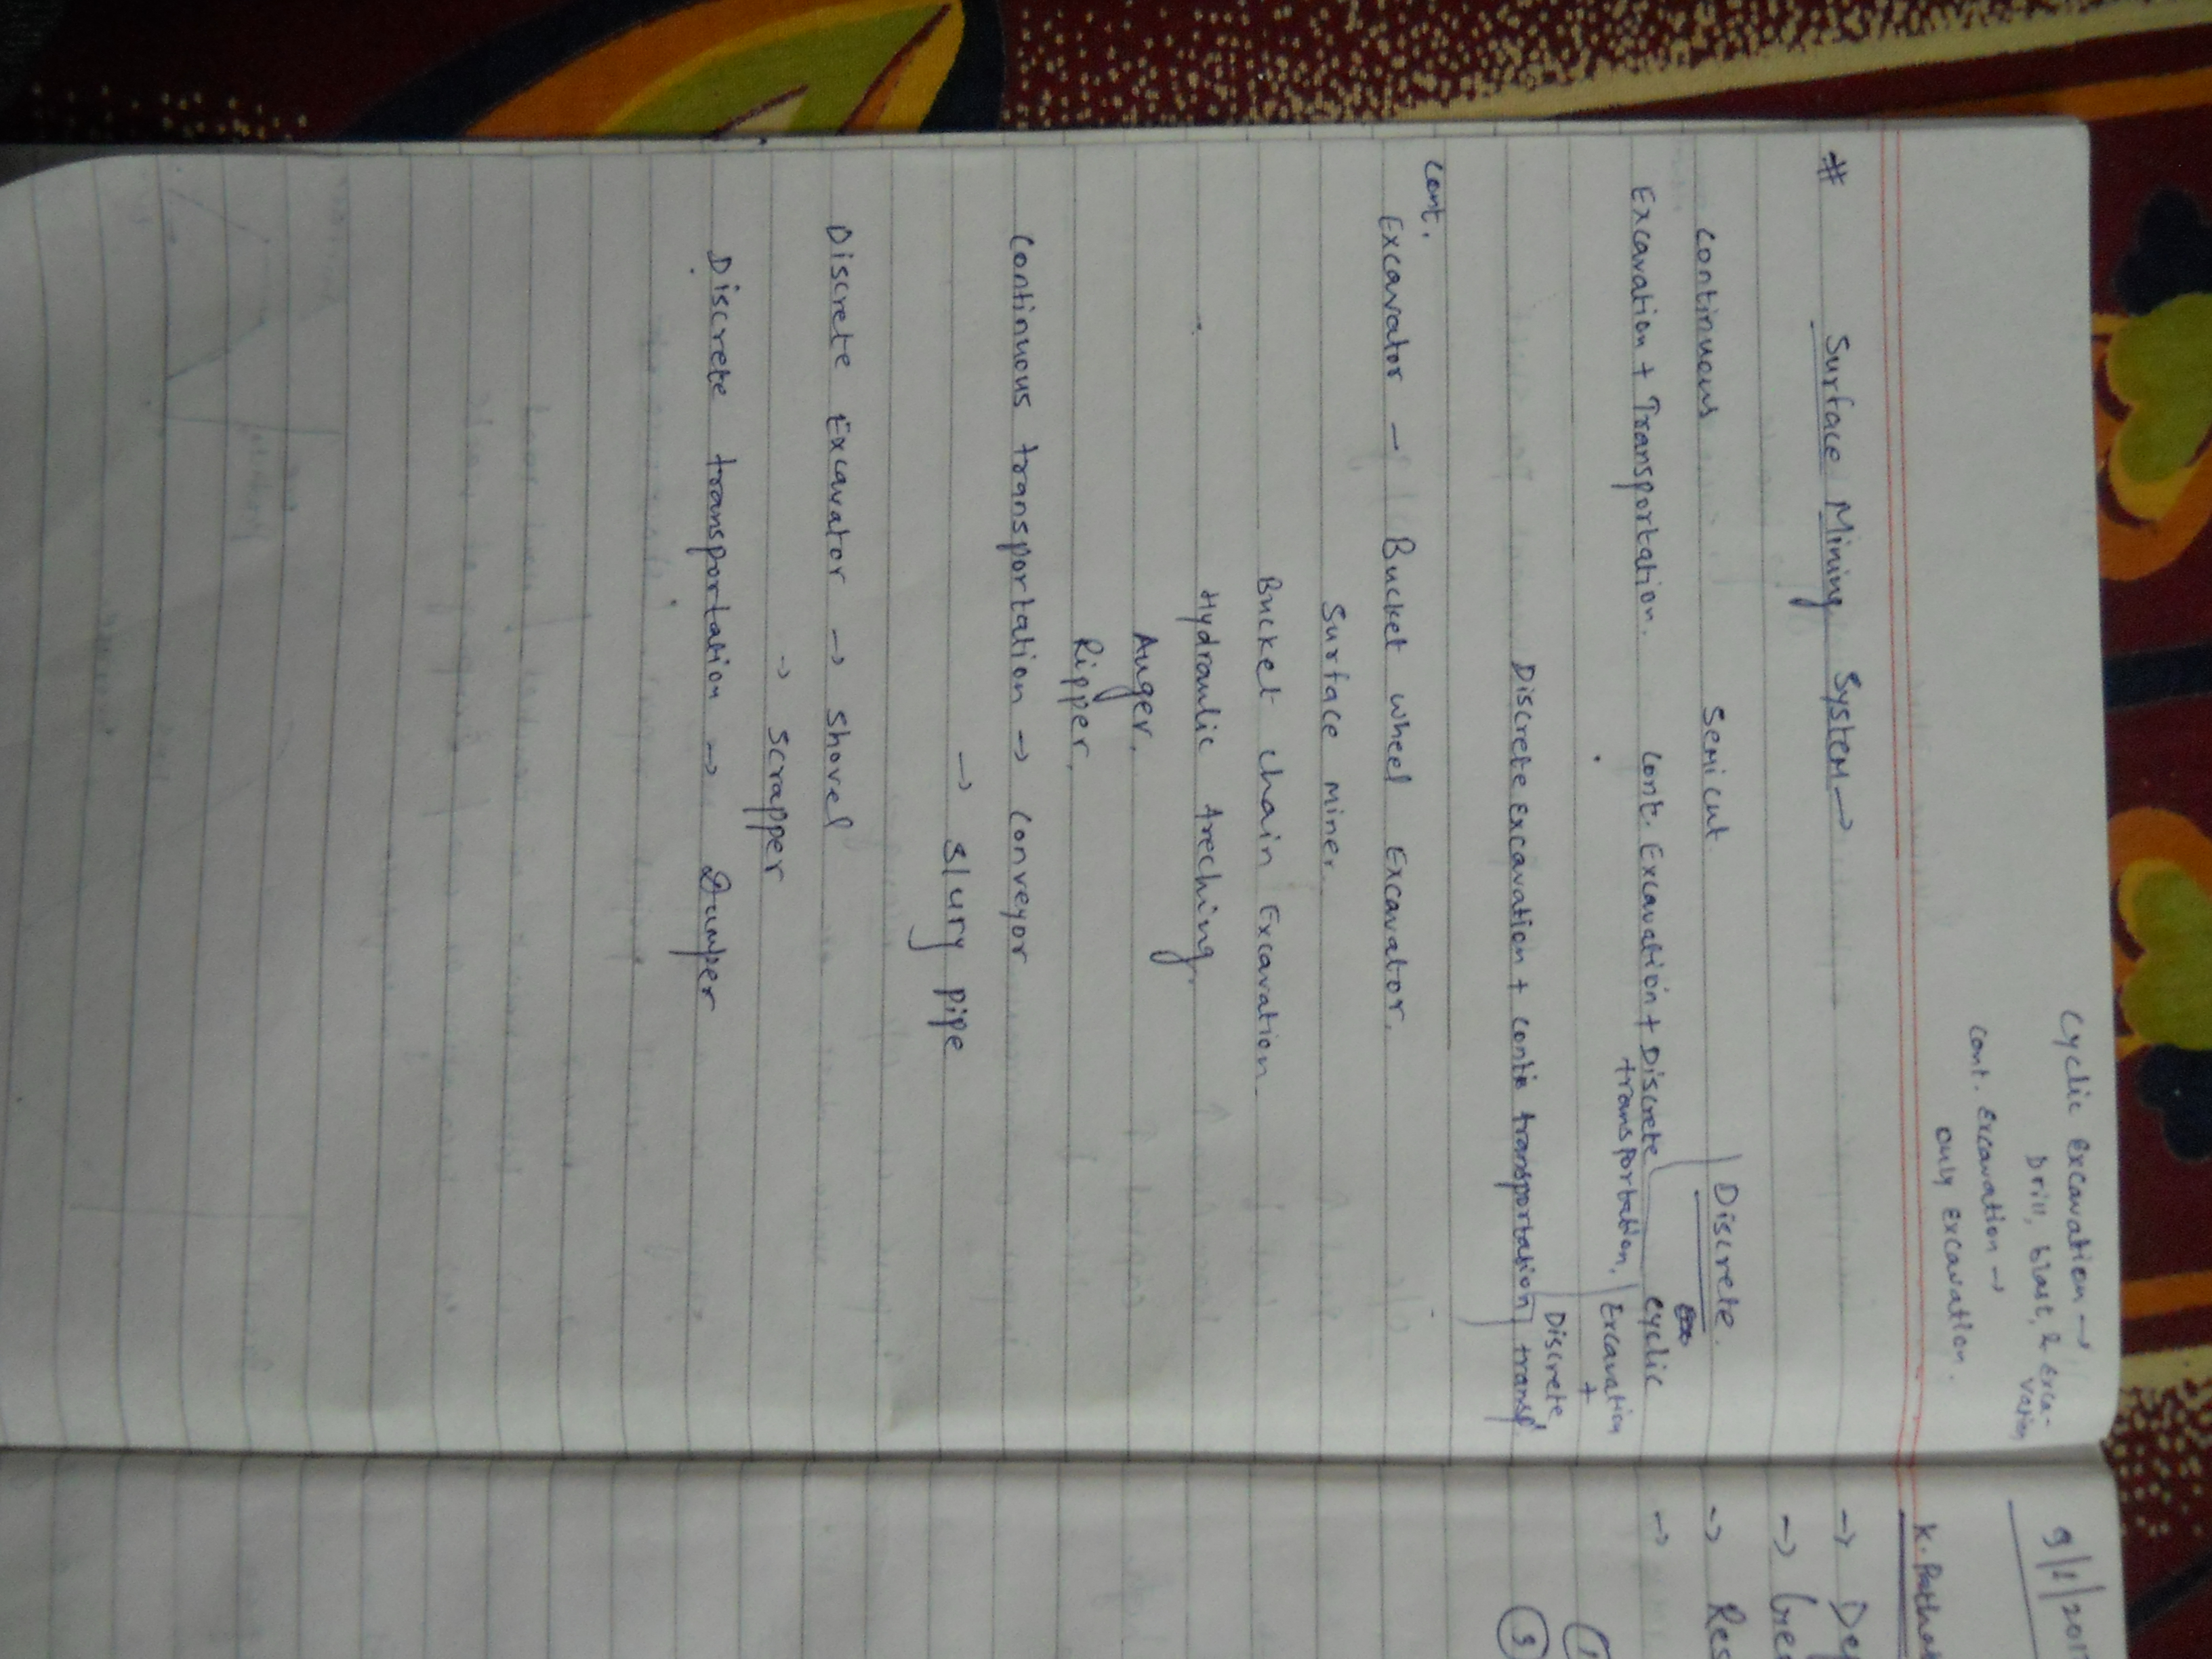 Cyclic excavation →
Drill, blast, & exca-
vation
cont. excavation →
only excavation.
# Surface Mining System →
continuous Semicut Discrete.
Excavation + Transportation. Cont. Excavation + Discrete transportation. cyclic Excavation + Discrete transp.
Discrete Excavation + conti transportation
cont.
Excavator → Bucket wheel Excavator.
Surface miner.
Bucket chain Excavation
Hydraulic Areching.
Auger.
Ripper.
Continuous transportation → conveyor
→ slury pipe
Discrete Excavator → shovel
→ scrapper
Discrete transportation → Dumper
9/1/201
→
→
→ Res
→
1
3